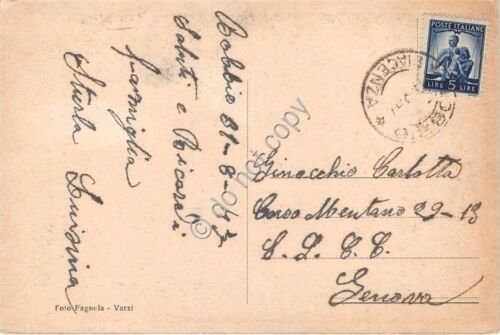 Bobbio 31-8-47
Saluti e Ricordi
famiglia
Sturla Luisina
Foto Fagnola - Varzi
POSTE ITALIANE
LIRE 5 LIRE
PIACENZA
Ginocchio Carlotta
Corso Mentano 29-13
S. L. C. C.
Genova
© do not copy